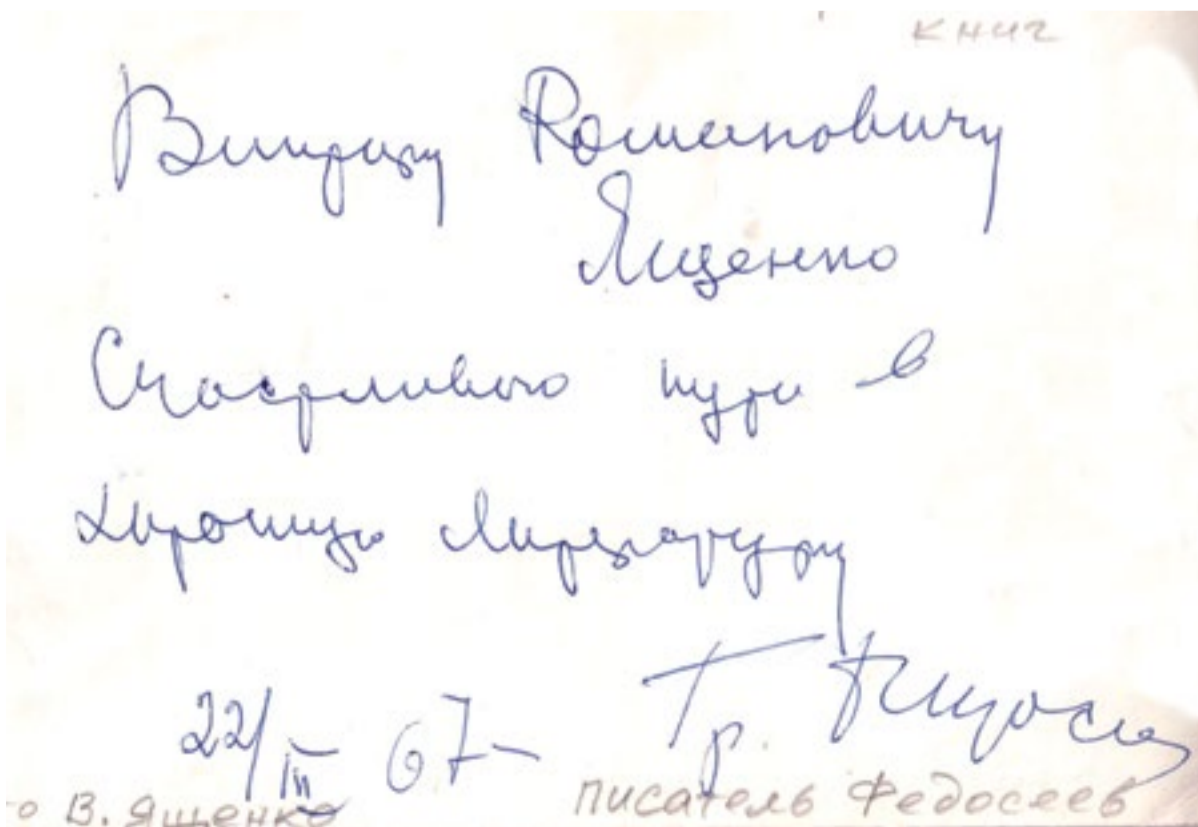 книг
Романовичу
Ященко
Счастливого пути в
хорошую литературу
22/III 67
Гр. Федосеев
о В. Ященко
писатель Федосеев